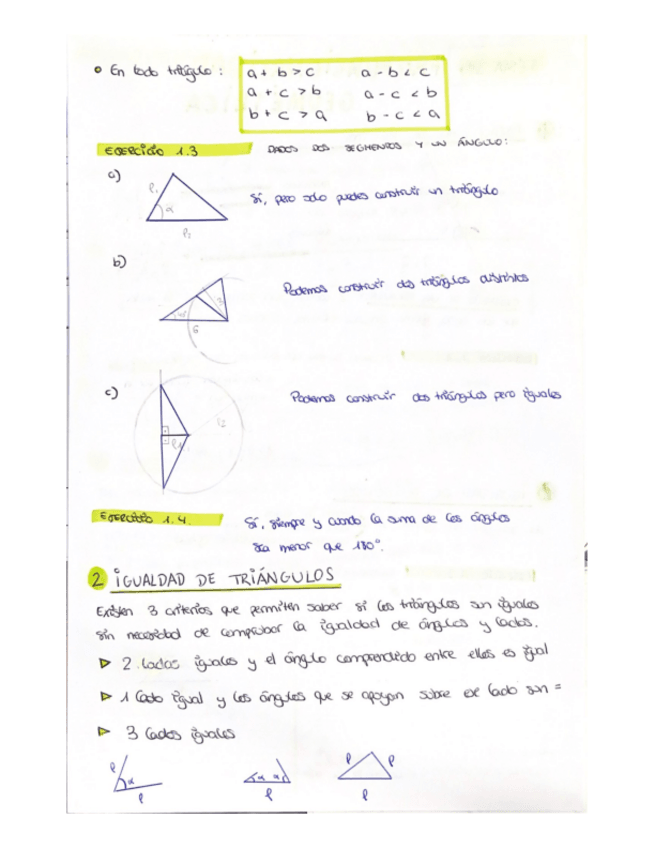 En todo triángulo: a + b > c a - b < c
a + c > b a - c < b
b + c > a b - c < a
EJERCICIO 1.3 DADOS DOS SEGMENTOS Y UN ÁNGULO:
a)
Sí, pero solo puedes construir un triángulo
l1
α
l2
b)
Podemos construir dos triángulos distintos
3
45°
6
c)
Podemos construir dos triángulos pero iguales
l2
l1
EJERCICIO 1.4. Sí, siempre y cuando la suma de los ángulos
sea menor que 180°.
2 IGUALDAD DE TRIÁNGULOS
Existen 3 criterios que permiten saber si los triángulos son iguales
sin necesidad de comprobar la igualdad de ángulos y lados.
2 lados iguales y el ángulo comprendido entre ellos es igual
1 lado igual y los ángulos que se apoyan sobre ese lado son =
3 lados iguales
l α l
α α l
l l l